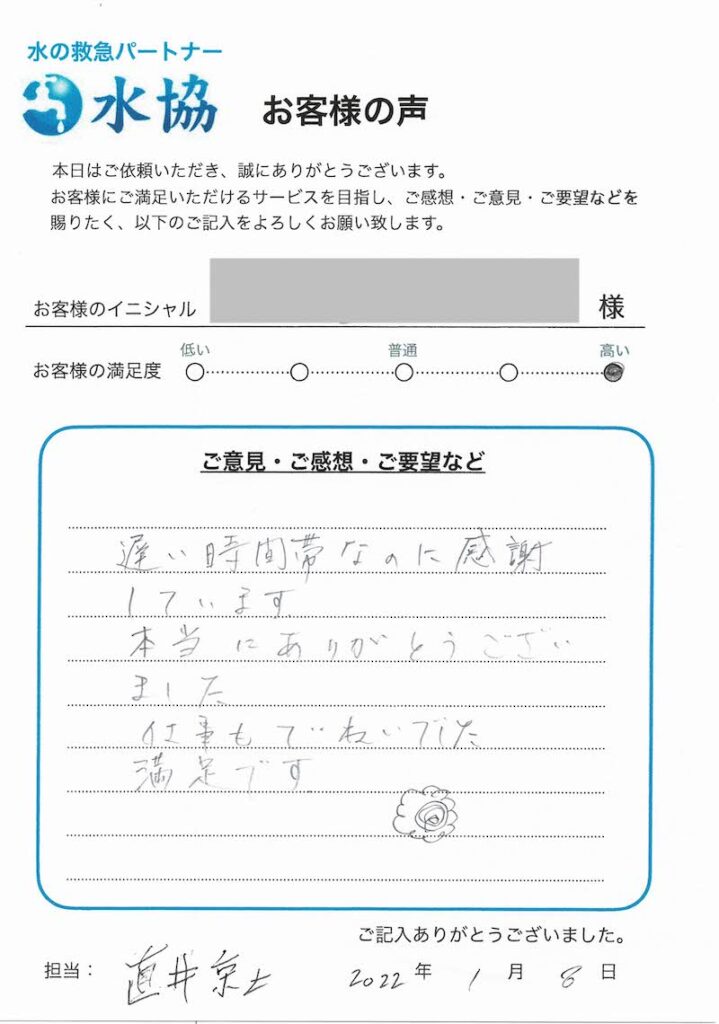 水の救急パートナー
水協
お客様の声
本日はご依頼いただき、誠にありがとうございます。
お客様にご満足いただけるサービスを目指し、ご感想・ご意見・ご要望などを
賜りたく、以下のご記入をよろしくお願い致します。
お客様のイニシャル 様
低い 普通 高い
お客様の満足度
ご意見・ご感想・ご要望など
遅い時間帯なのに感謝
しています
本当にありがとうござい
ました
仕事もていねいでした
満足です
ご記入ありがとうございました。
担当： 直井京士 2022 年 1 月 8 日